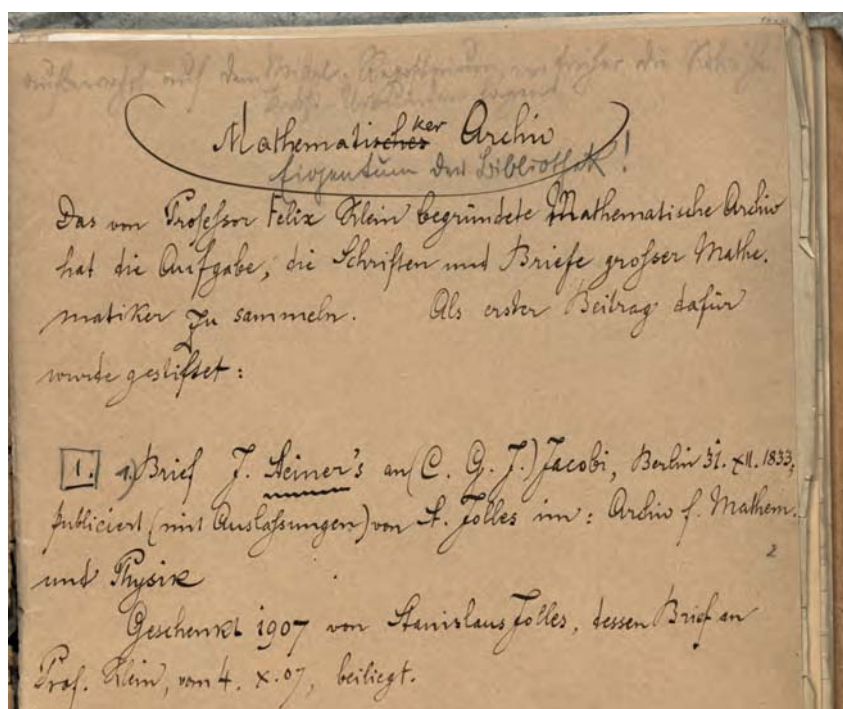 aufbewahrt auf dem
Mathematischesker Archiv
Eigentum der Bibliothek!
Das von Professor Felix Klein begründete Mathematische Archiv
hat die Aufgabe, die Schriften und Briefe grosser Mathe-
matiker zu sammeln. Als erster Beitrag dafür
wurde gestiftet:
1. 1.) Brief J. Steiner's an (C. G. J.) Jacobi, Berlin 31. XII. 1833,
publiciert (mit Auslassungen) von St. Jolles im: Archiv f. Mathem.
2
und Physik
Geschenkt 1907 von Stanislaus Jolles, dessen Brief an
Prof. Klein, vom 4. X. 07, beiliegt.